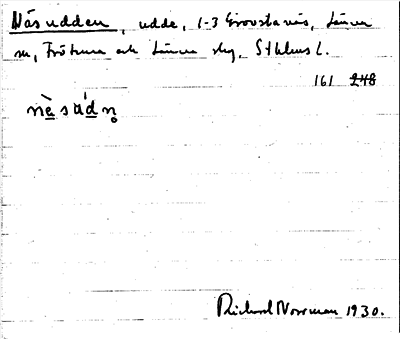 Näsudden, udde, 1-3 Grovstanäs, Länna
sn, Frötuna och Länna skg, Sthlms l.
161 248
nèsúdn̥
Richard Norrman 1930.